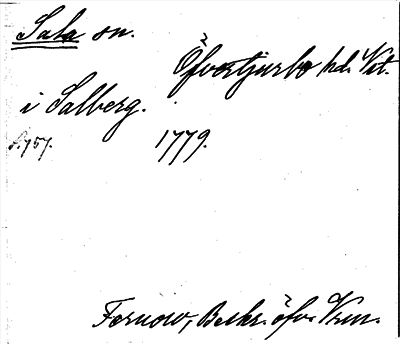 Sala sn.
Öfvertjurbo hd. Vst.
i Salberg.
s. 757. 1779.
Fernow, Beskr. öfv. Vrm.